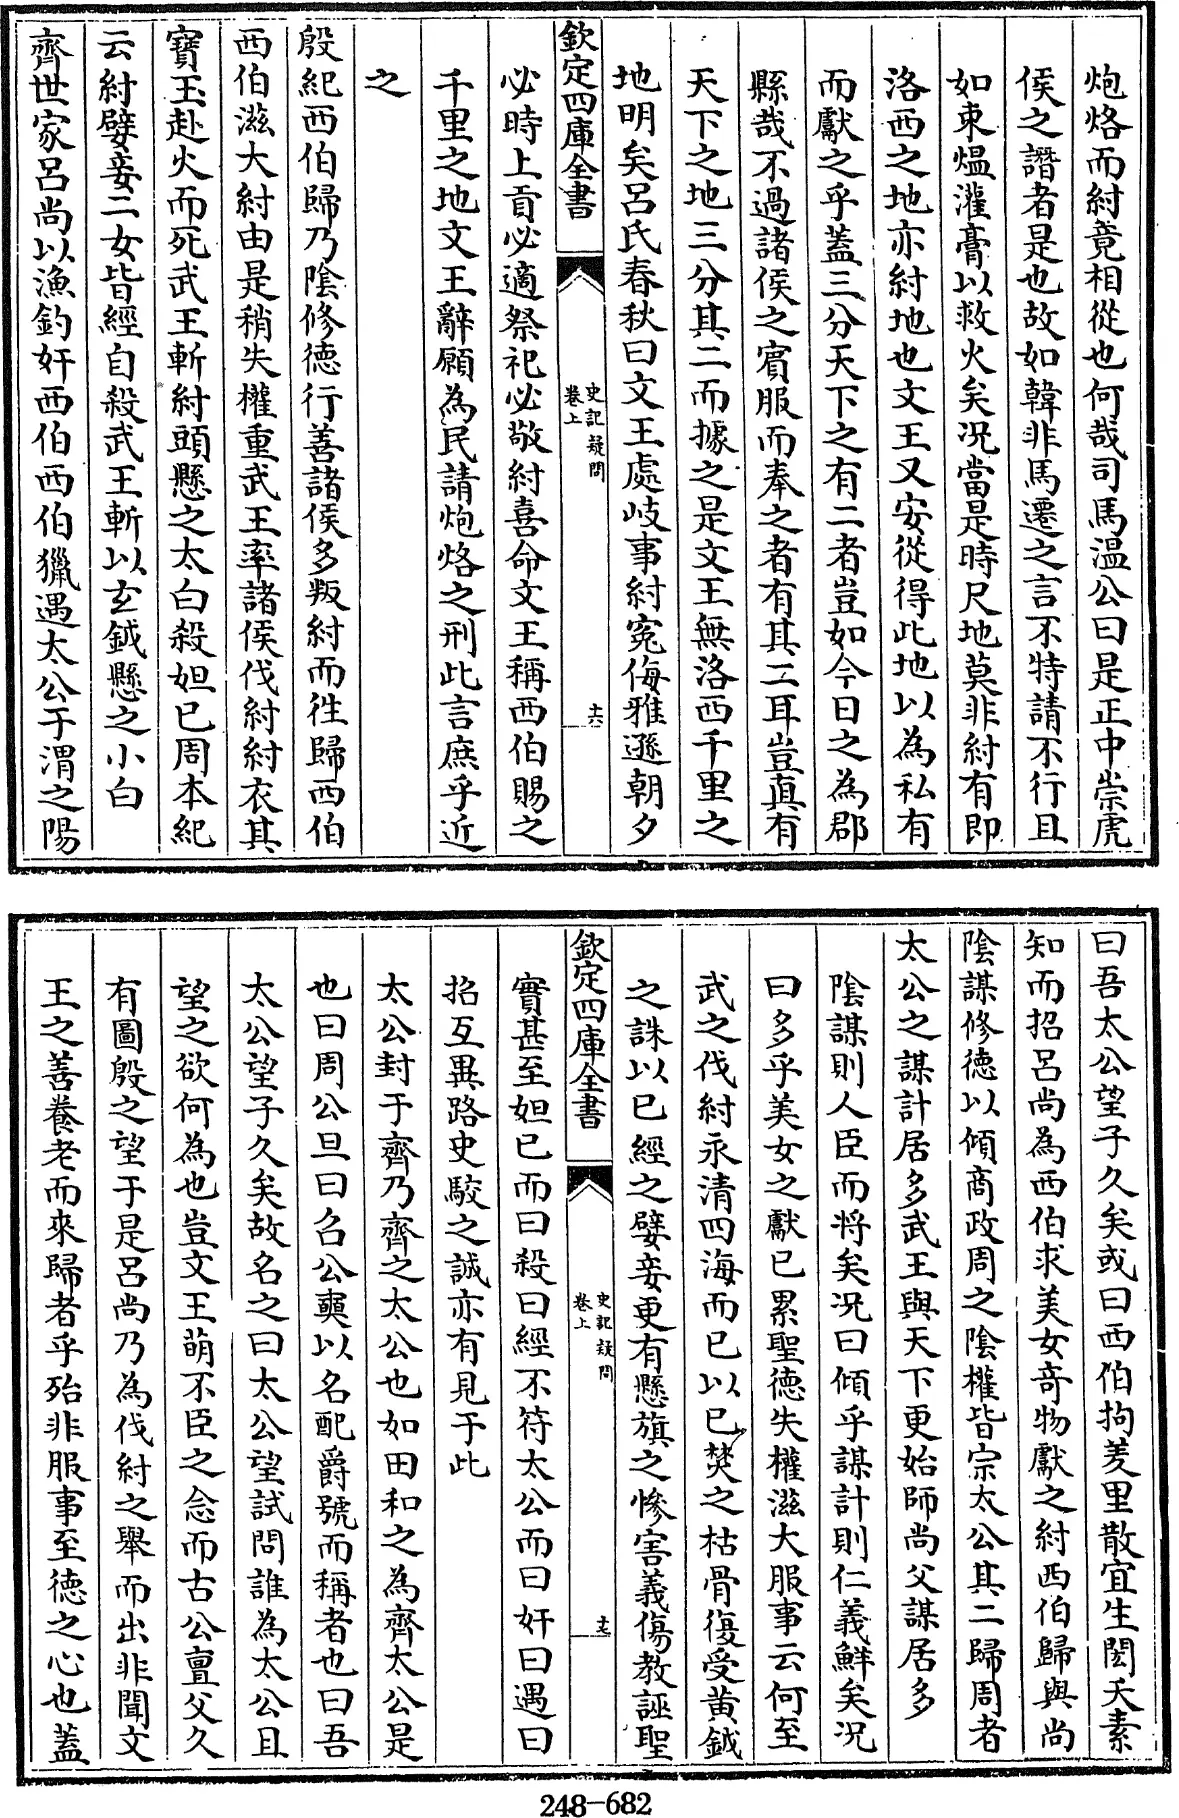 炮烙而紂竟相從也何哉司馬温公曰是正中崇虎
侯之譖者是也故如韓非馬遷之言不特請不行且
如束煴灌膏以救火矣况當是時尺地莫非紂有即
洛西之地亦紂地也文王又安從得此地以為私有
而獻之乎蓋三分天下之有二者豈如今日之為郡
縣哉不過諸侯之賔服而奉之者有其二耳豈真有
天下之地三分其二而據之是文王無洛西千里之
地明矣呂氏春秋曰文王處岐事紂寃侮雅遜朝夕
欽定四庫全書
史記疑問
卷上
十六
必時上貢必適祭祀必敬紂喜命文王稱西伯賜之
千里之地文王辭願為民請炮烙之刑此言庶乎近
之
殷紀西伯歸乃陰修德行善諸侯多叛紂而徃歸西伯
西伯滋大紂由是稍失權重武王率諸侯伐紂紂衣其
寶玉赴火而死武王斬紂頭懸之太白殺妲已周本紀
云紂嬖妾二女皆經自殺武王斬以玄鉞懸之小白
齊世家呂尚以漁釣奸西伯西伯獵遇太公于渭之陽
曰吾太公望子久矣或曰西伯拘羑里散宜生閎夭素
知而招呂尚為西伯求美女奇物獻之紂西伯歸與尚
陰謀修德以傾商政周之陰權皆宗太公其二歸周者
太公之謀計居多武王與天下更始師尚父謀居多
陰謀則人臣而將矣况曰傾乎謀計則仁義鮮矣况
曰多乎美女之獻已累聖德失權滋大服事云何至
武之伐紂永清四海而已以已焚之枯骨復受黄鉞
之誅以已經之嬖妾更有懸旗之慘害義傷教誣聖
欽定四庫全書
史記疑問
卷上
十七
實甚至妲已而曰殺曰經不符太公而曰奸曰遇曰
招互異路史駁之誠亦有見于此
太公封于齊乃齊之太公也如田和之為齊太公是
也曰周公旦曰召公奭以名配爵號而稱者也曰吾
太公望子久矣故名之曰太公望試問誰為太公且
望之欲何為也豈文王萌不臣之念而古公亶父久
有圖殷之望于是呂尚乃為伐紂之舉而出非聞文
王之善養老而來歸者乎殆非服事至德之心也蓋
248-682